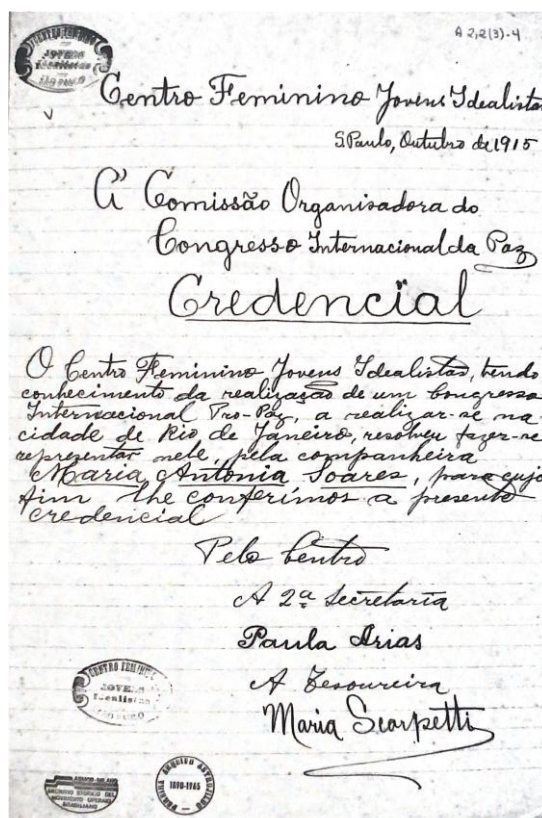 A 2,2(3)-4
CENTRO FEMININO
JOVENS
Idealistas
SÃO PAULO
Centro Feminino Jovens Idealistas
S. Paulo, Outubro de 1915
A' Comissão Organisadora do
Congresso Internacional da Paz
Credencial
O Centro Feminino Jovens Idealistas, tendo
conhecimento da realização de um Congresso
Internacional Pro-Paz, a realizar-se na
cidade de Rio de Janeiro, resolveu fazer-se
representar nele, pela companheira
Maria Antonia Soares, para cujo
fim lhe conferimos a presente
credencial
Pelo Centro
A 2ª Secretaria
Paula Arias
A Tesoureira
Maria Scarpetti
CENTRO FEMININO
JOVENS
Idealistas
SÃO PAULO
ASMOB-MILANO
ARCHIVIO STORICO DEL
MOVIMENTO OPERAIO
BRASILIANO
ARQUIVO ASTROJILDO
PEREIRA
1890-1965